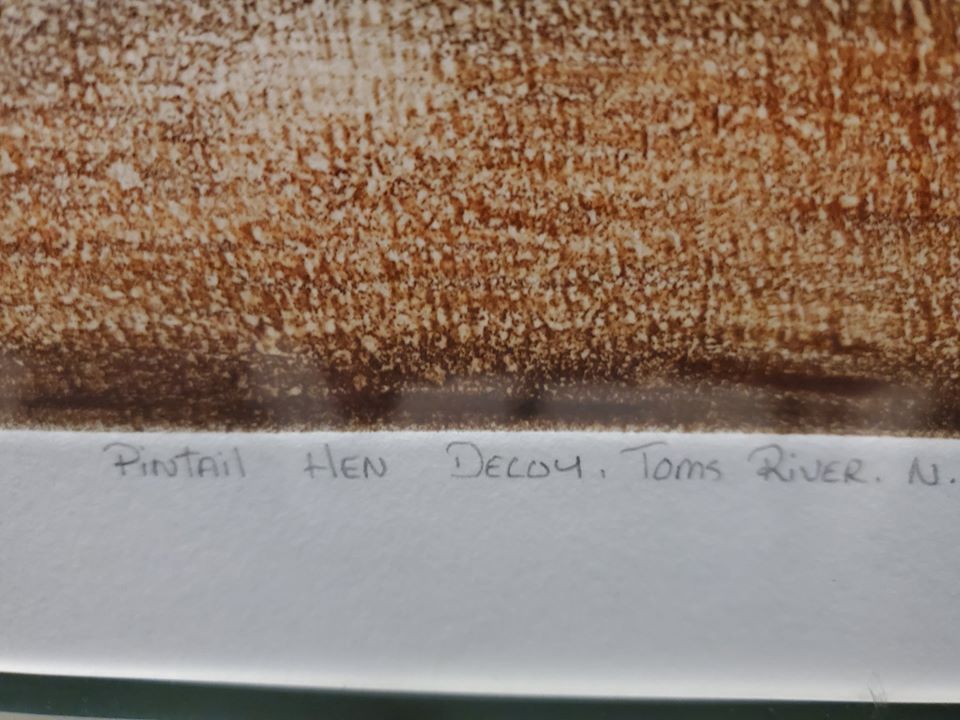 Pintail Hen Decoy. Toms River. N.